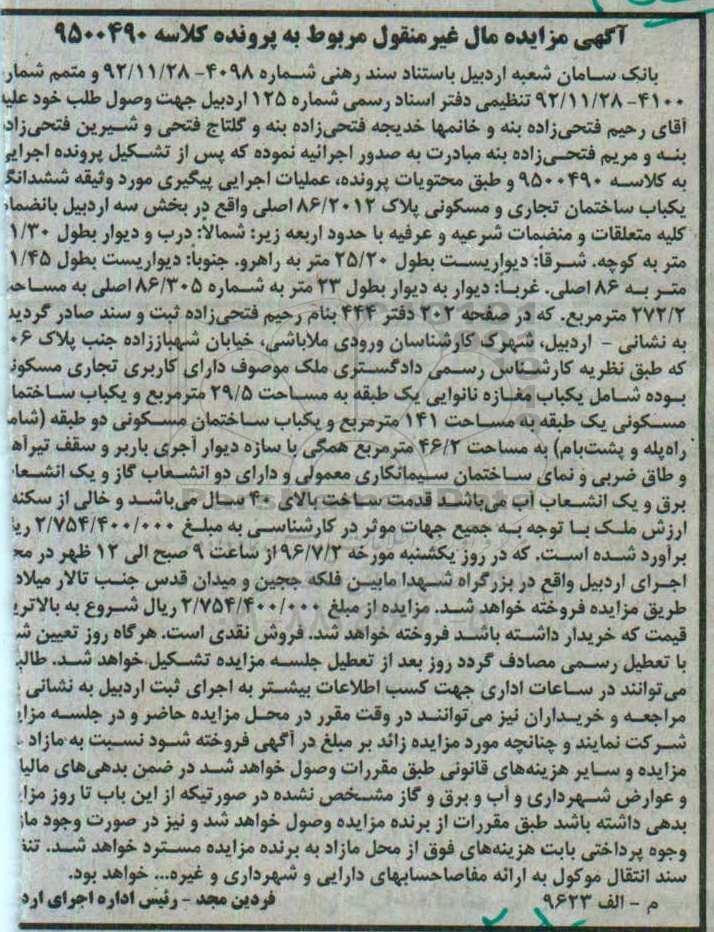 آگهی مزایده مال غیرمنقول مربوط به پرونده کلاسه ۹۵۰۰۴۹۰
بانک سامان شعبه اردبیل باستناد سند رهنی شماره ۴۰۹۸- ۹۲/۱۱/۲۸ و متمم شمار
۴۱۰۰- ۹۲/۱۱/۲۸ تنظیمی دفتر اسناد رسمی شماره ۱۲۵ اردبیل جهت وصول طلب خود علیه
آقای رحیم فتحی‌زاده بنه و خانمها خدیجه فتحی‌زاده بنه و گلتاج فتحی و شیرین فتحی‌زاد
بنه و مریم فتحی‌زاده بنه مبادرت به صدور اجرائیه نموده که پس از تشکیل پرونده اجرایی
به کلاسه ۹۵۰۰۴۹۰ و طبق محتویات پرونده، عملیات اجرایی پیگیری مورد وثیقه ششدانگ
یکباب ساختمان تجاری و مسکونی پلاک ۸۶/۲۰۱۲ اصلی واقع در بخش سه اردبیل بانضمام
کلیه متعلقات و منضمات شرعیه و عرفیه با حدود اربعه زیر: شمالاً: درب و دیوار بطول ۱/۳۰
متر به کوچه. شرقاً: دیواریست بطول ۲۵/۲۰ متر به راهرو. جنوباً: دیواریست بطول ۱/۴۵
متر به ۸۶ اصلی. غرباً: دیوار به دیوار بطول ۲۳ متر به شماره ۸۶/۳۰۵ اصلی به مساحت
۲۷۲/۲ مترمربع. که در صفحه ۲۰۲ دفتر ۴۴۴ بنام رحیم فتحی‌زاده ثبت و سند صادر گردید
به نشانی - اردبیل، شهرک کارشناسان ورودی ملاباشی، خیابان شهباززاده جنب پلاک ۰۶
که طبق نظریه کارشناس رسمی دادگستری ملک موصوف دارای کاربری تجاری مسکونی
بوده شامل یکباب مغازه نانوایی یک طبقه به مساحت ۲۹/۵ مترمربع و یکباب ساختمان
مسکونی یک طبقه به مساحت ۱۴۱ مترمربع و یکباب ساختمان مسکونی دو طبقه (شامل
راه‌پله و پشت‌بام) به مساحت ۴۶/۲ مترمربع همگی با سازه دیوار آجری باربر و سقف تیرآهن
و طاق ضربی و نمای ساختمان سیمانکاری معمولی و دارای دو انشعاب گاز و یک انشعاب
برق و یک انشعاب آب می‌باشد قدمت ساخت بالای ۴۰ سال می‌باشد و خالی از سکنه
ارزش ملک با توجه به جمیع جهات موثر در کارشناسی به مبلغ ۲/۷۵۴/۴۰۰/۰۰۰ ریا
برآورد شده است. که در روز یکشنبه مورخه ۹۶/۷/۲ از ساعت ۹ صبح الی ۱۲ ظهر در مح
اجرای اردبیل واقع در بزرگراه شهدا مابین فلکه ججین و میدان قدس جنب تالار میلاد
طریق مزایده فروخته خواهد شد. مزایده از مبلغ ۲/۷۵۴/۴۰۰/۰۰۰ ریال شروع به بالاتری
قیمت که خریدار داشته باشد فروخته خواهد شد. فروش نقدی است. هرگاه روز تعیین ش
با تعطیل رسمی مصادف گردد روز بعد از تعطیل جلسه مزایده تشکیل خواهد شد. طالب
می‌توانند در ساعات اداری جهت کسب اطلاعات بیشتر به اجرای ثبت اردبیل به نشانی
مراجعه و خریداران نیز می‌توانند در وقت مقرر در محل مزایده حاضر و در جلسه مزای
شرکت نمایند و چنانچه مورد مزایده زائد بر مبلغ در آگهی فروخته شود نسبت به مازاد
مزایده و سایر هزینه‌های قانونی طبق مقررات وصول خواهد شد در ضمن بدهی‌های مالیا
و عوارض شهرداری و آب و برق و گاز مشخص نشده در صورتیکه از این باب تا روز مزای
بدهی داشته باشد طبق مقررات از برنده مزایده وصول خواهد شد و نیز در صورت وجود ماز
وجوه پرداختی بابت هزینه‌های فوق از محل مازاد به برنده مزایده مسترد خواهد شد. تنظ
سند انتقال موکول به ارائه مفاصاحسابهای دارایی و شهرداری و غیره... خواهد بود.
م - الف ۹۶۲۳ فردین مجد - رئیس اداره اجرای ارد